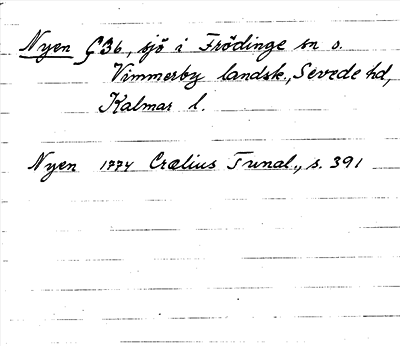 Nyen Ç36, sjö i Frödinge sn o.
Vimmerby landsk., Sevede hd,
Kalmar l.
Nyen 1774 Crælius Tunal., s. 391